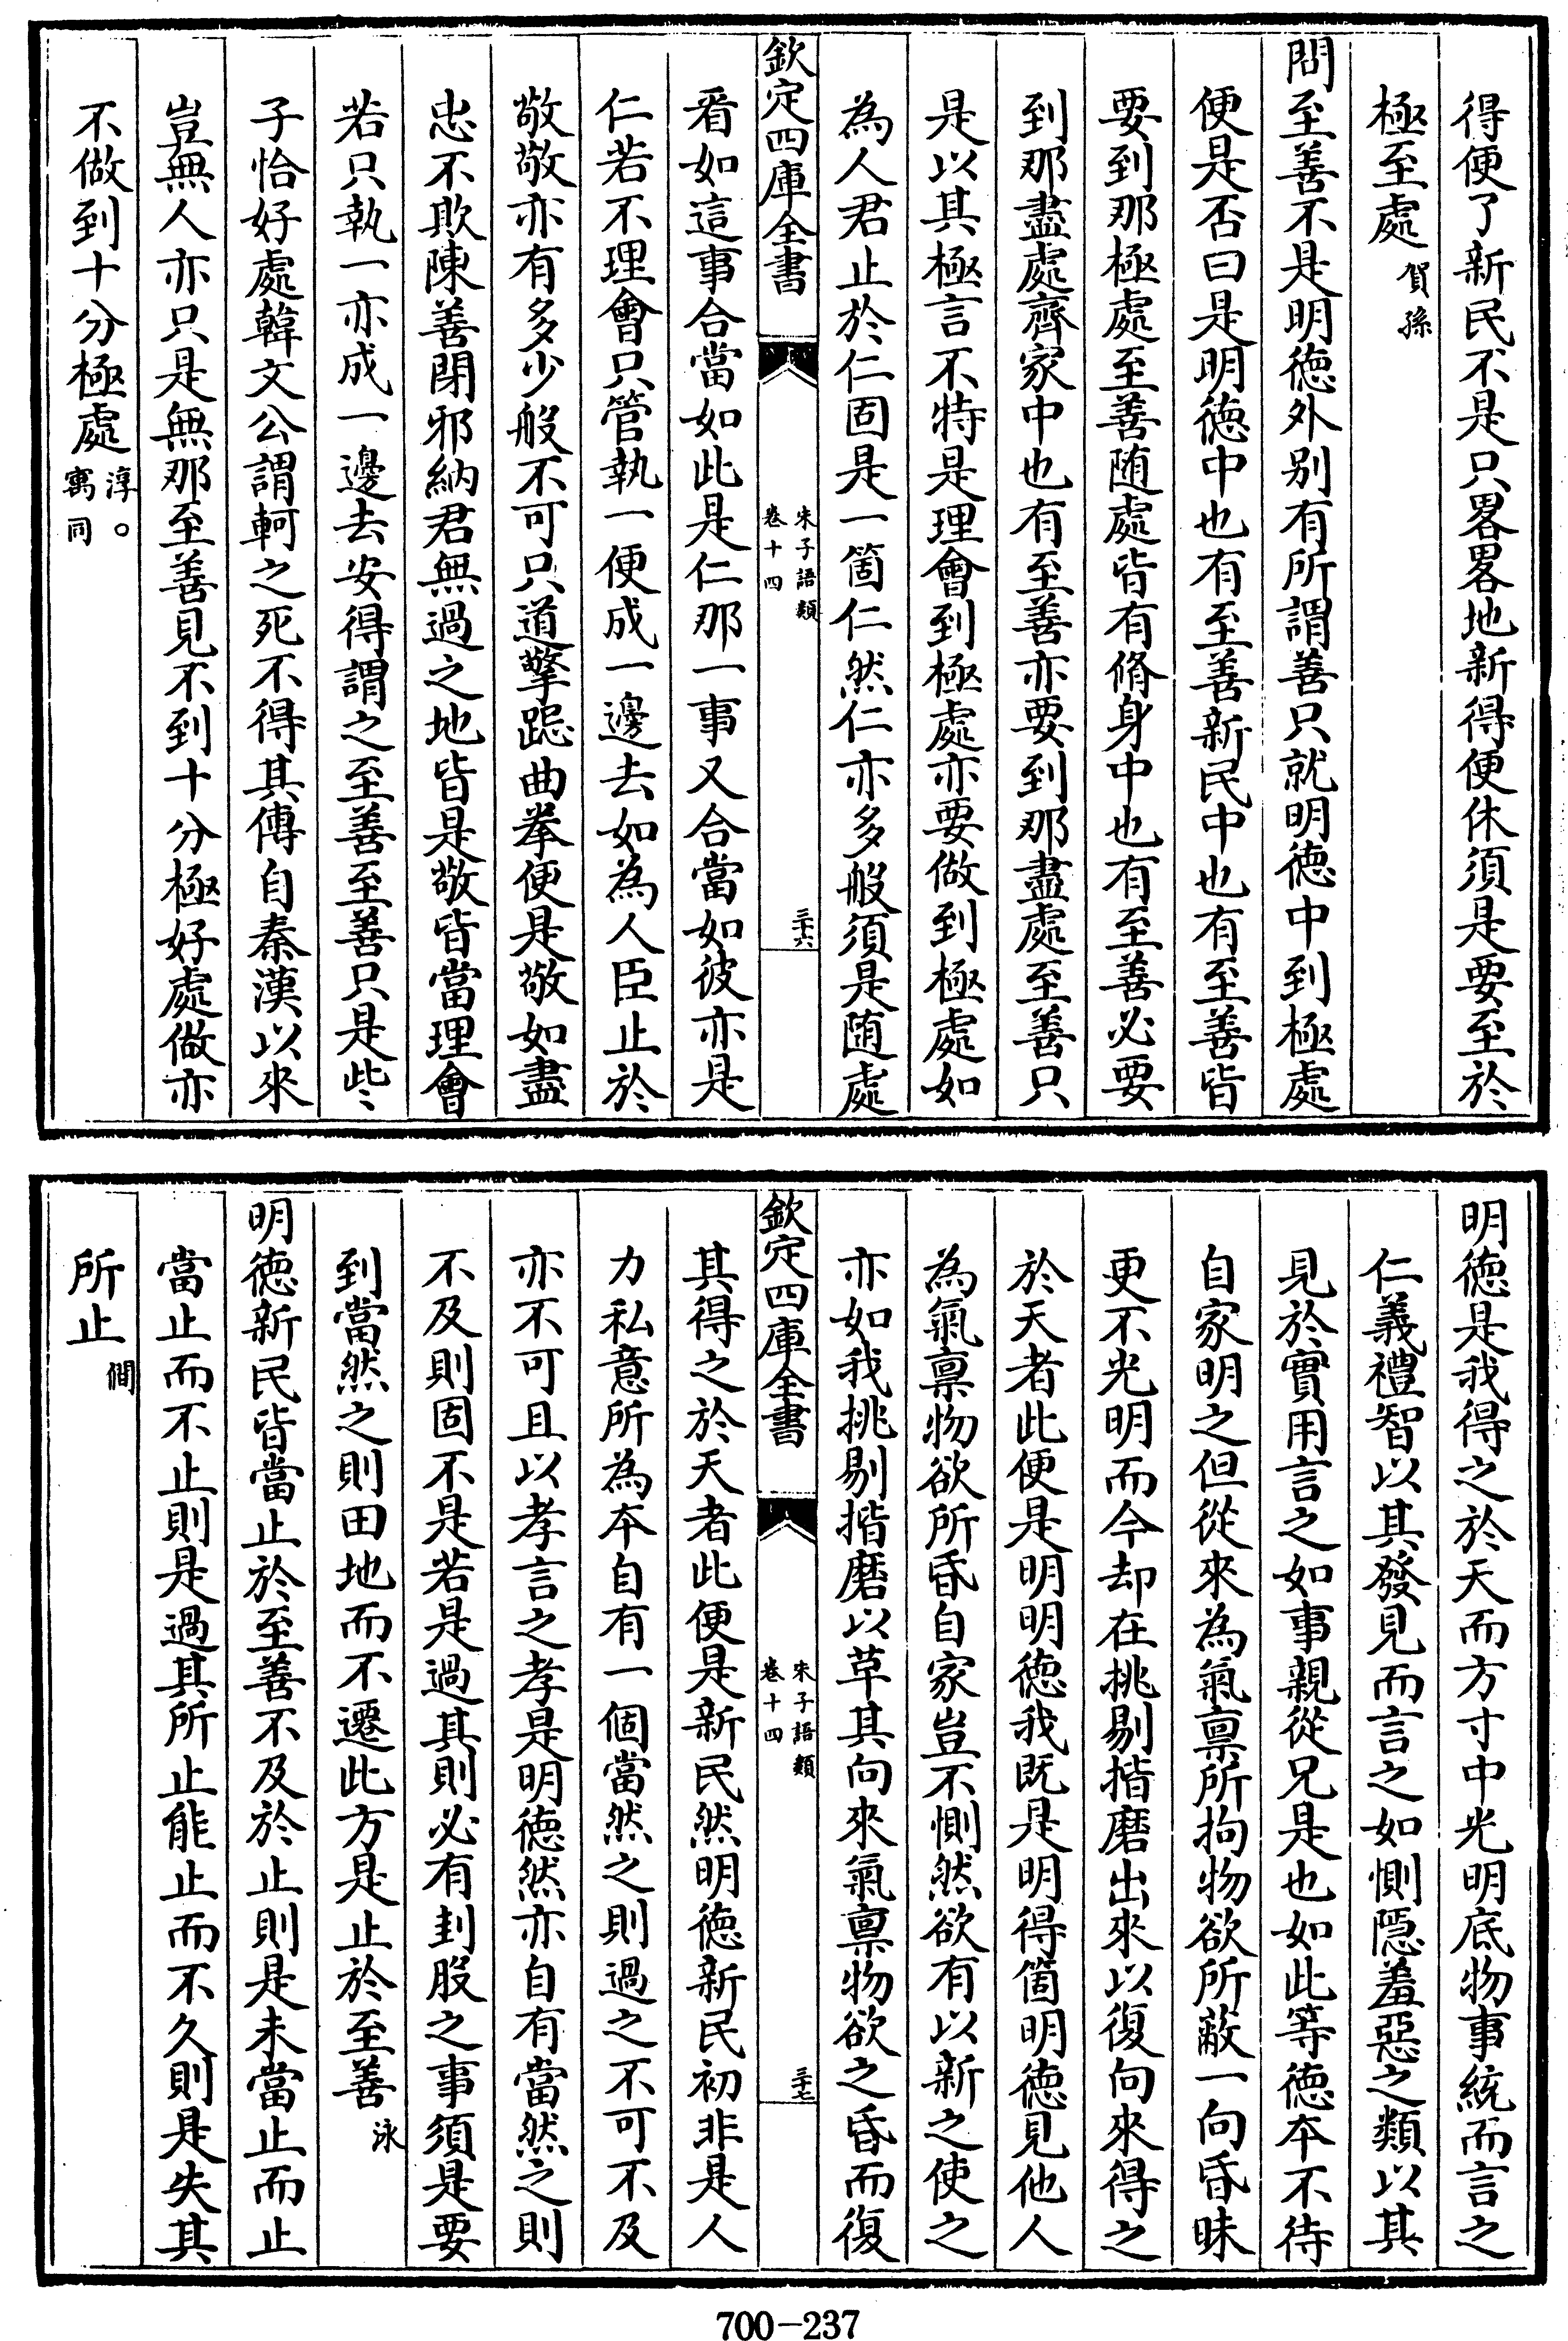 得便了新民不是只畧畧地新得便休須是要至於
極至處賀孫
問至善不是明德外别有所謂善只就明德中到極處
便是否曰是明德中也有至善新民中也有至善皆
要到那極處至善随處皆有脩身中也有至善必要
到那盡處齊家中也有至善亦要到那盡處至善只
是以其極言不特是理會到極處亦要做到極處如
為人君止於仁固是一箇仁然仁亦多般須是随處
欽定四庫全書
朱子語類
卷十四
三十六
看如這事合當如此是仁那一事又合當如彼亦是
仁若不理會只管執一便成一邊去如為人臣止於
敬敬亦有多少般不可只道擎跽曲拳便是敬如盡
忠不欺陳善閉邪納君無過之地皆是敬皆當理會
若只執一亦成一邊去安得謂之至善至善只是些
子恰好處韓文公謂軻之死不得其傳自秦漢以來
豈無人亦只是無那至善見不到十分極好處做亦
不做到十分極處淳○
寓同
明德是我得之於天而方寸中光明底物事統而言之
仁義禮智以其發見而言之如惻隠羞惡之類以其
見於實用言之如事親從兄是也如此等德本不待
自家明之但從來為氣禀所拘物欲所蔽一向昏昧
更不光明而今却在挑剔揩磨出來以復向來得之
於天者此便是明明德我既是明得箇明德見他人
為氣禀物欲所昏自家豈不惻然欲有以新之使之
亦如我挑剔揩磨以革其向來氣禀物欲之昏而復
欽定四庫全書
朱子語類
卷十四
三十七
其得之於天者此便是新民然明德新民初非是人
力私意所為本自有一個當然之則過之不可不及
亦不可且以孝言之孝是明德然亦自有當然之則
不及則固不是若是過其則必有刲股之事須是要
到當然之則田地而不遷此方是止於至善泳
明德新民皆當止於至善不及於止則是未當止而止
當止而不止則是過其所止能止而不久則是失其
所止僩
700-237